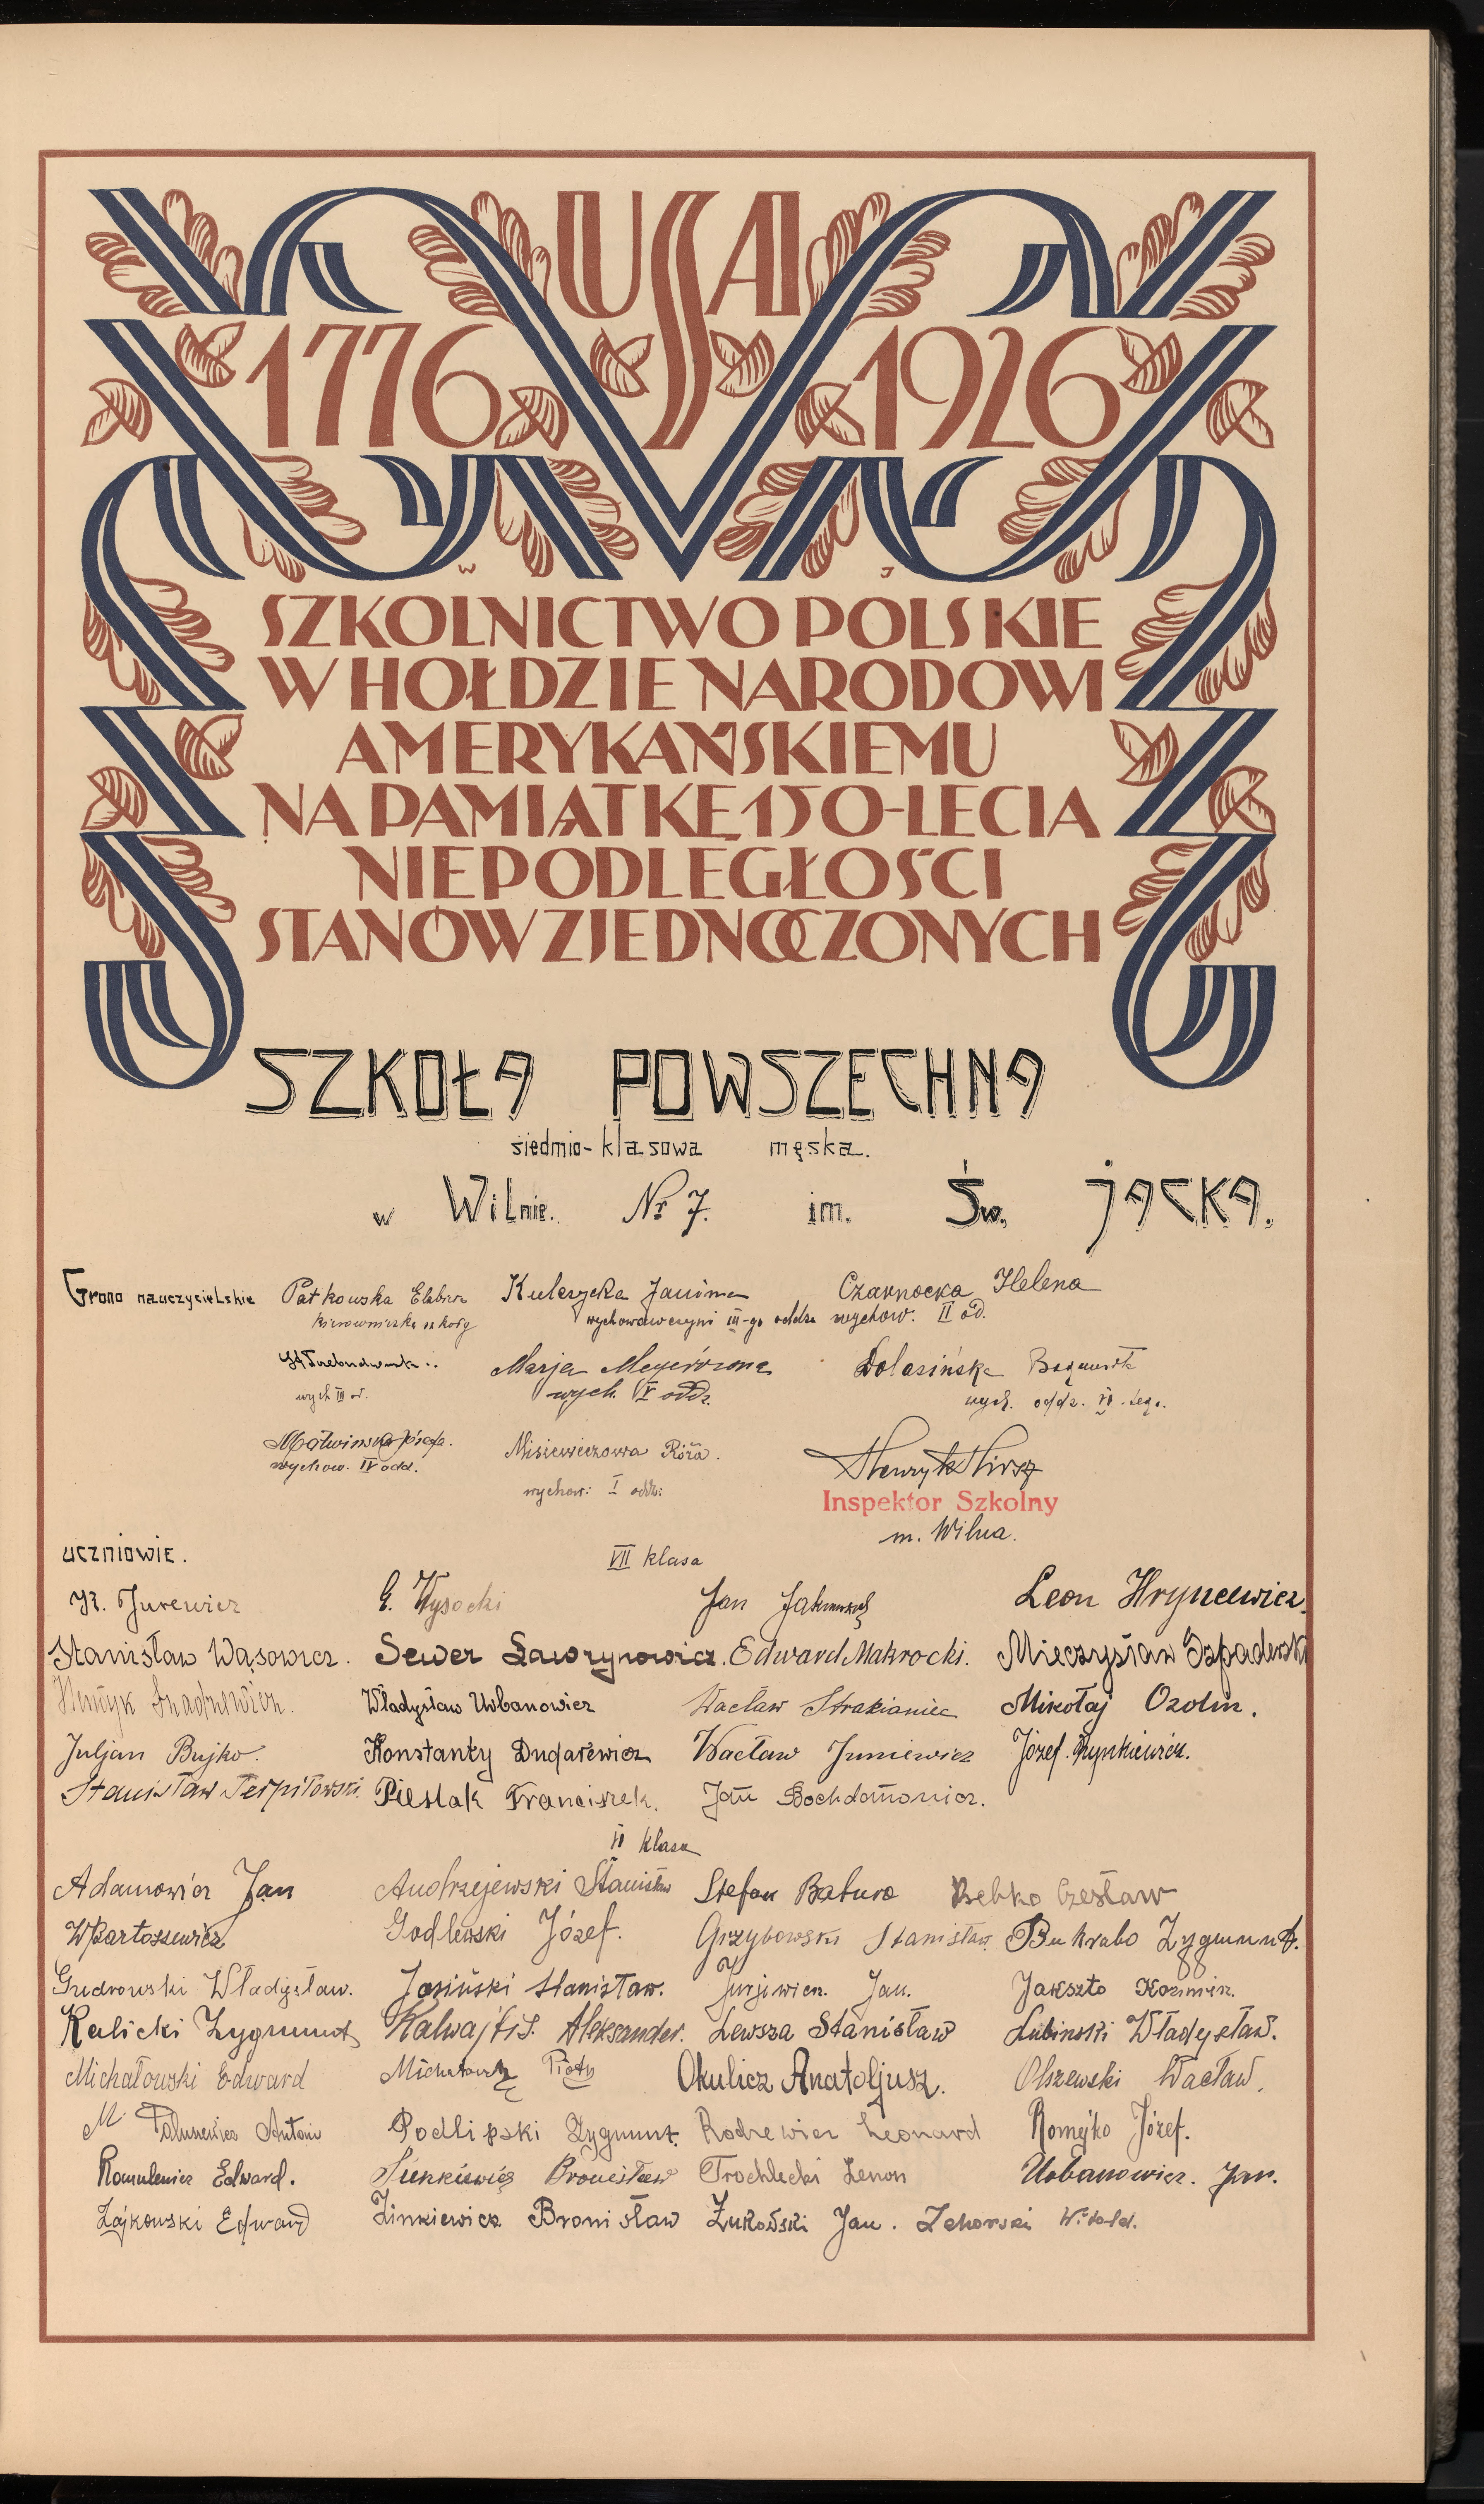 USA
1776 1926
W J
SZKOLNICTWO POLSKIE
W HOŁDZIE NARODOWI
AMERYKAŃSKIEMU
NA PAMIĄTKĘ 150-LECIA
NIEPODLEGŁOŚCI
STANÓW ZJEDNOCZONYCH
SZKOŁA POWSZECHNA
siedmio-klasowa męska.
w Wilnie. Nr 7. im. Św. JACKA.
Grono nauczycielskie Patkowska Kuleszka Janina Czarnocka Helena
kierowniczka szkoły wychowawczyni III-go oddz. wychow. II od.
Marja Dolasińska
wych III od. wych. V oddz. wych. oddz.
Józefa. Misiewiczowa Róża.
wychow. IV odd. wychow: I oddz: Henryk Hirsz
Inspektor Szkolny
m. Wilna.
uczniowie. VII klasa
Jurewicz G. Wysocki Jan Leon Hryncewicz.
Stanisław Wąsowicz. Sewer Ławrynowicz. Edward Makrocki. Mieczysław
Henryk Władysław Urbanowicz Wacław Strakianiec Mikołaj Ozolin.
Juljan Bujko. Konstanty Dudarewicz Wacław Juniewicz Józef Rynkiewicz.
Stanisław Terpiłowski. Pieslak Franciszek. Jan Bochdanowicz.
VI klasa
Adamowicz Jan Andrzejewski Stanisław Stefan Batura Bebko Czesław
W Bartoszewicz Godlewski Józef. Grzybowski Stanisław Bukrabo Zygmunt.
Gudrowski Władysław. Jasiński Stanisław. Jurjewicz. Jan. Jakszto Kazimierz.
Kalicki Zygmunt Kalwajtis. Aleksander. Lewsza Stanisław Lubinski Władysław.
Michałowski Edward Michałowski Piotr Okulicz Anatoljusz. Olszewski Wacław.
M Antoni Podlipski Zygmunt. Rodziewicz Leonard Romejko Józef.
Romulewicz Edward. Sienkiewicz Bronisław Trochlecki Zenon Urbanowicz. Jan.
Zajkowski Edward Zinkiewicz Bronisław Żukowski Jan. Zahorski Witold.